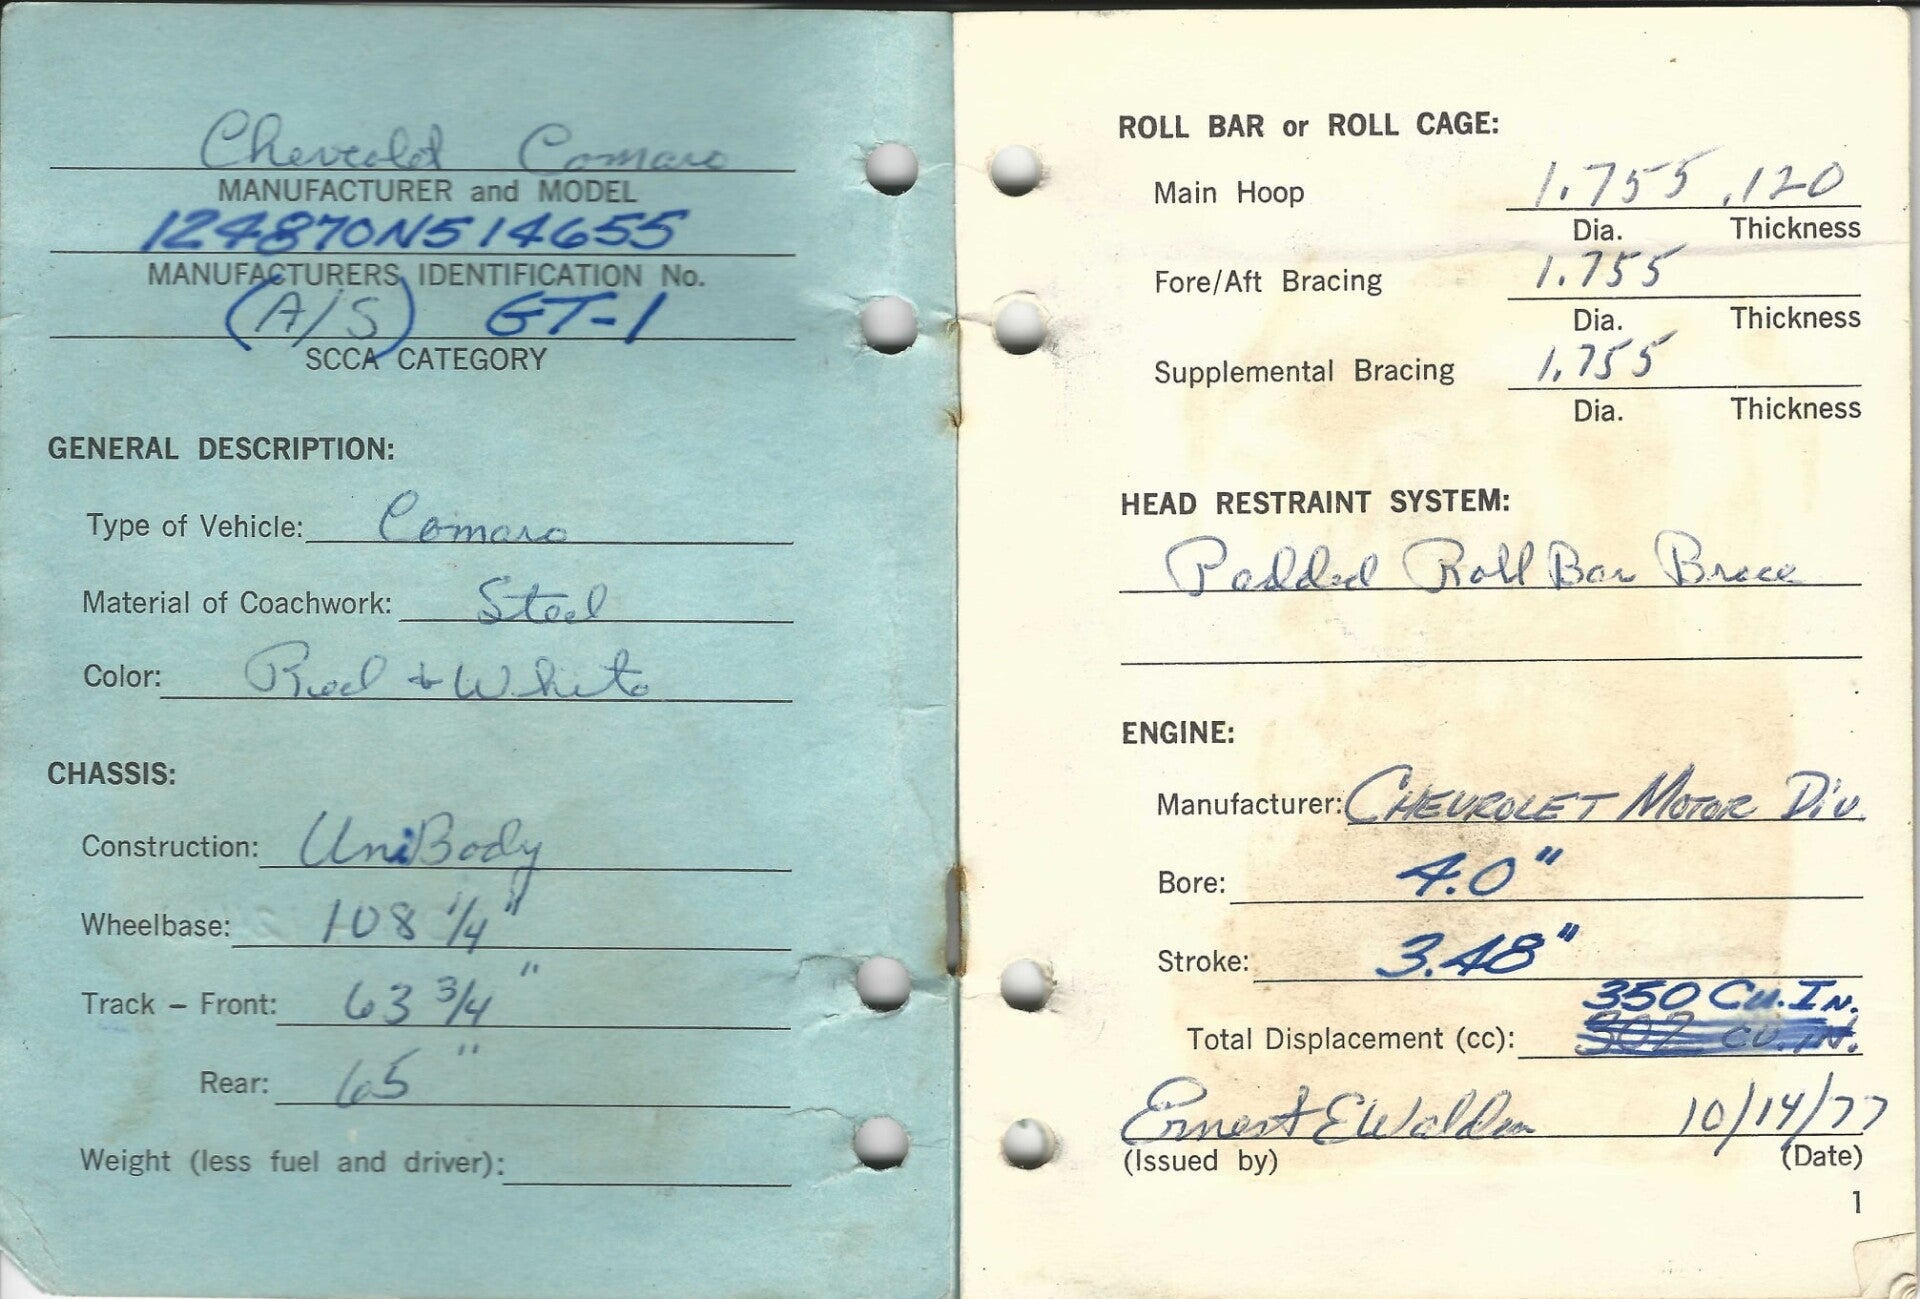 Chevrolet Camaro
MANUFACTURER and MODEL
124870N514655
MANUFACTURERS IDENTIFICATION No.
(A/S) GT-1
SCCA CATEGORY
GENERAL DESCRIPTION:
Type of Vehicle: Camaro
Material of Coachwork: Steel
Color: Red + White
CHASSIS:
Construction: UniBody
Wheelbase: 108 1/4"
Track – Front: 63 3/4"
Rear: 65"
Weight (less fuel and driver):
ROLL BAR or ROLL CAGE:
Main Hoop 1.755 .120
Dia. Thickness
Fore/Aft Bracing 1.755
Dia. Thickness
Supplemental Bracing 1.755
Dia. Thickness
HEAD RESTRAINT SYSTEM:
Padded Roll Bar Brace
ENGINE:
Manufacturer: CHEVROLET MOTOR Div.
Bore: 4.0"
Stroke: 3.48"
350 CU. IN.
Total Displacement (cc): 302 CU. IN.
Ernest E Walden 10/14/77
(Issued by) (Date)
1